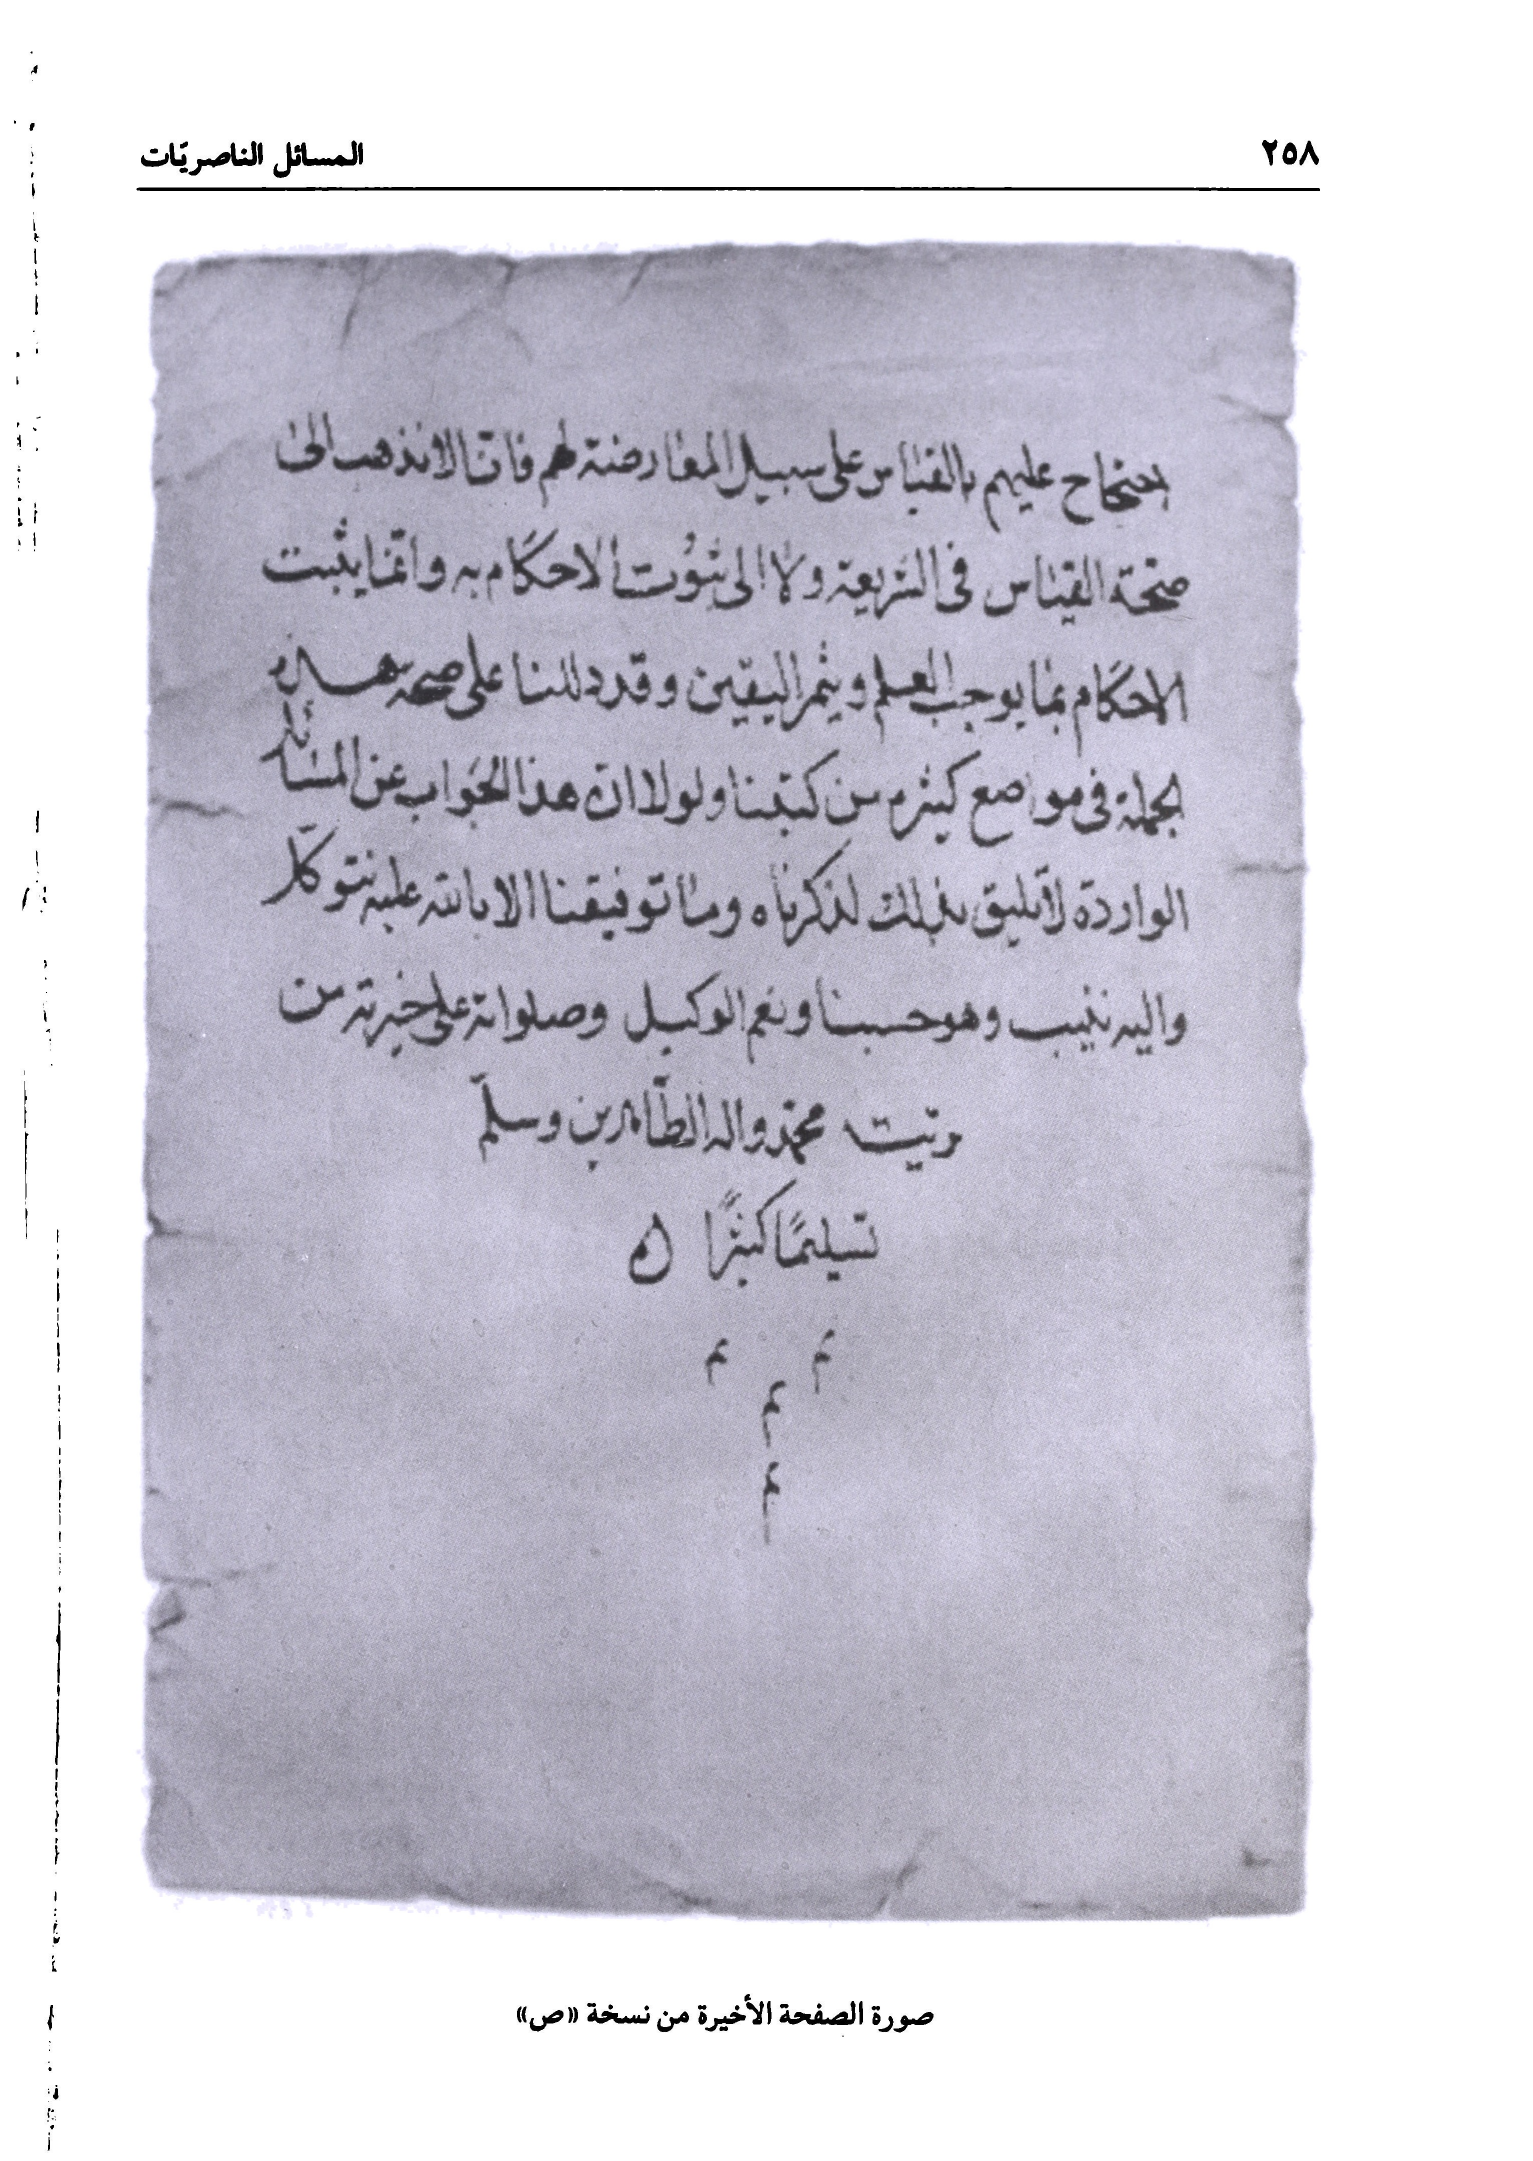 ٢٥٨
المسائل الناصريّات
احتجاج عليهم بالقياس على سبيل المعارضة لهم فانّا لا نذهب الى
صحّة القياس فى الشريعة ولا الى ثبوت الاحكام به وانّما يثبت
الاحكام بما يوجب العلم ويثمر اليقين وقد دللنا على صحة هذه
الجملة فى مواضع كثيرة من كتبنا ولولا ان هذا الجواب عن المسائل
الواردة لا يليق بذلك لذكرناه وما توفيقنا الا بالله عليه نتوكّل
واليه ننيب وهو حسبنا ونعم الوكيل وصلواته على خيرته من
بريّته محمّد واله الطّاهرين وسلّم
تسليمًا كثيرًا
صورة الصفحة الأخيرة من نسخة «ص»